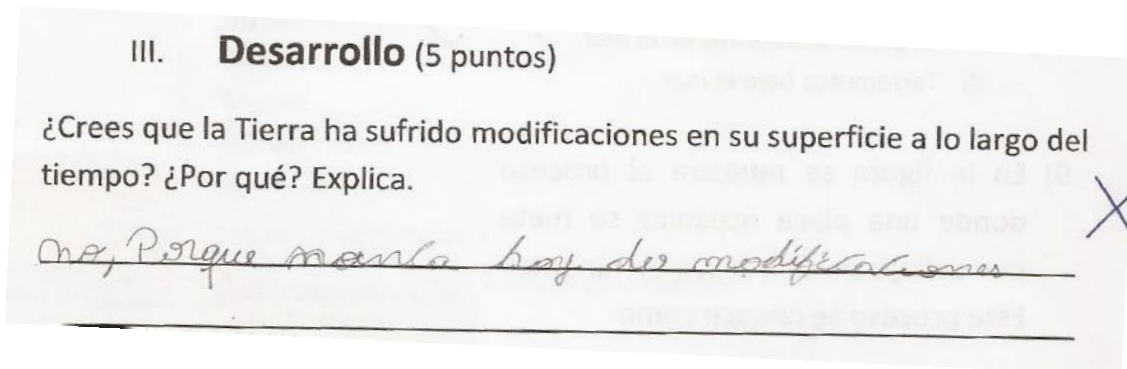 III. Desarrollo (5 puntos)
¿Crees que la Tierra ha sufrido modificaciones en su superficie a lo largo del
tiempo? ¿Por qué? Explica.
no, Porque nunca hay des modificaciones